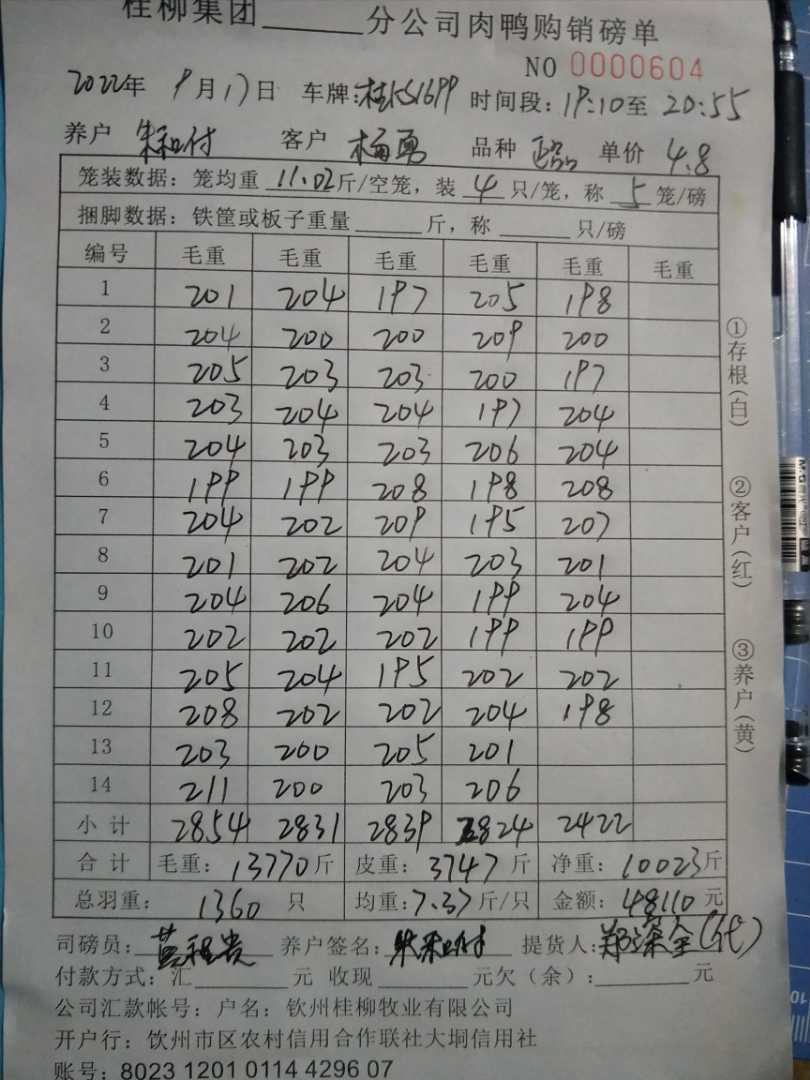 桂柳集团______分公司肉鸭购销磅单
NO 0000604
2022年 9月17日 车牌: 时间段:19:10至 20:55
养户 朱和付 客户 杨勇 品种 单价 4.8
笼装数据:笼均重 11.02斤/空笼,装 4 只/笼,称 5 笼/磅
捆脚数据:铁筐或板子重量______斤,称______只/磅
编号 毛重 毛重 毛重 毛重 毛重 毛重
1 201 204 197 205 198
2 204 200 200 209 200
3 205 203 203 200 197
4 203 204 204 197 204
5 204 203 203 206 204
6 199 199 208 198 208
7 204 202 209 195 207
8 201 202 204 203 201
9 204 206 204 199 204
10 202 202 202 199 199
11 205 204 195 202 202
12 208 202 202 204 198
13 203 200 205 201
14 211 200 203 206
小计 2854 2831 2839 2824 2422
合计 毛重:13770斤 皮重:3747斤 净重:10023斤
总羽重: 1360 只 均重:7.37斤/只 金额:48110元
司磅员: 养户签名:朱和付 提货人:郑深全(代)
付款方式:汇______元 收现______元欠(余):______元
公司汇款帐号:户名:钦州桂柳牧业有限公司
开户行:钦州市区农村信用合作联社大垌信用社
账号:8023 1201 0114 4296 07
①存根(白)
②客户(红)
③养户(黄)